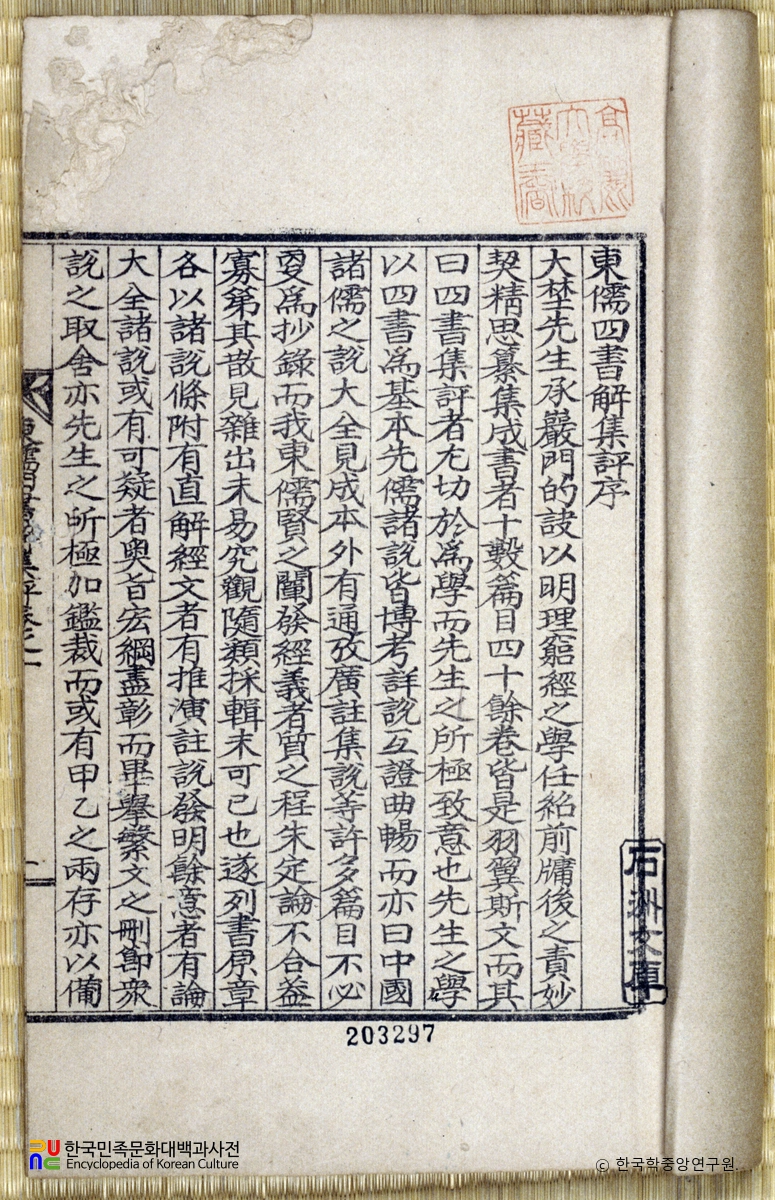 東儒四書解集評序
大埜先生承嚴門的訣以明理窮經之學任紹前牖後之責妙
契精思纂集成書者十數篇目四十餘卷皆是羽翼斯文而其
曰四書集評者尤切於爲學而先生之所極致意也先生之學
以四書爲基本先儒諸說皆博考詳說互證曲暢而亦曰中國
諸儒之說大全見成本外有通攷廣註集說等許多篇目不必
更爲抄錄而我東儒賢之闡發經義者質之程朱定論不合益
寡第其散見雜出未易究觀隨類採輯末可已也遂列書原章
各以諸說條附有直解經文者有推演註說發明餘意者有論
大全諸說或有可疑者奧旨宏綱盡彰而畢擧繁文之刪節衆
說之取舍亦先生之所極加鑑裁而或有甲乙之兩存亦以備
石洲文庫
203297
한국민족문화대백과사전
Encyclopedia of Korean Culture
© 한국학중앙연구원